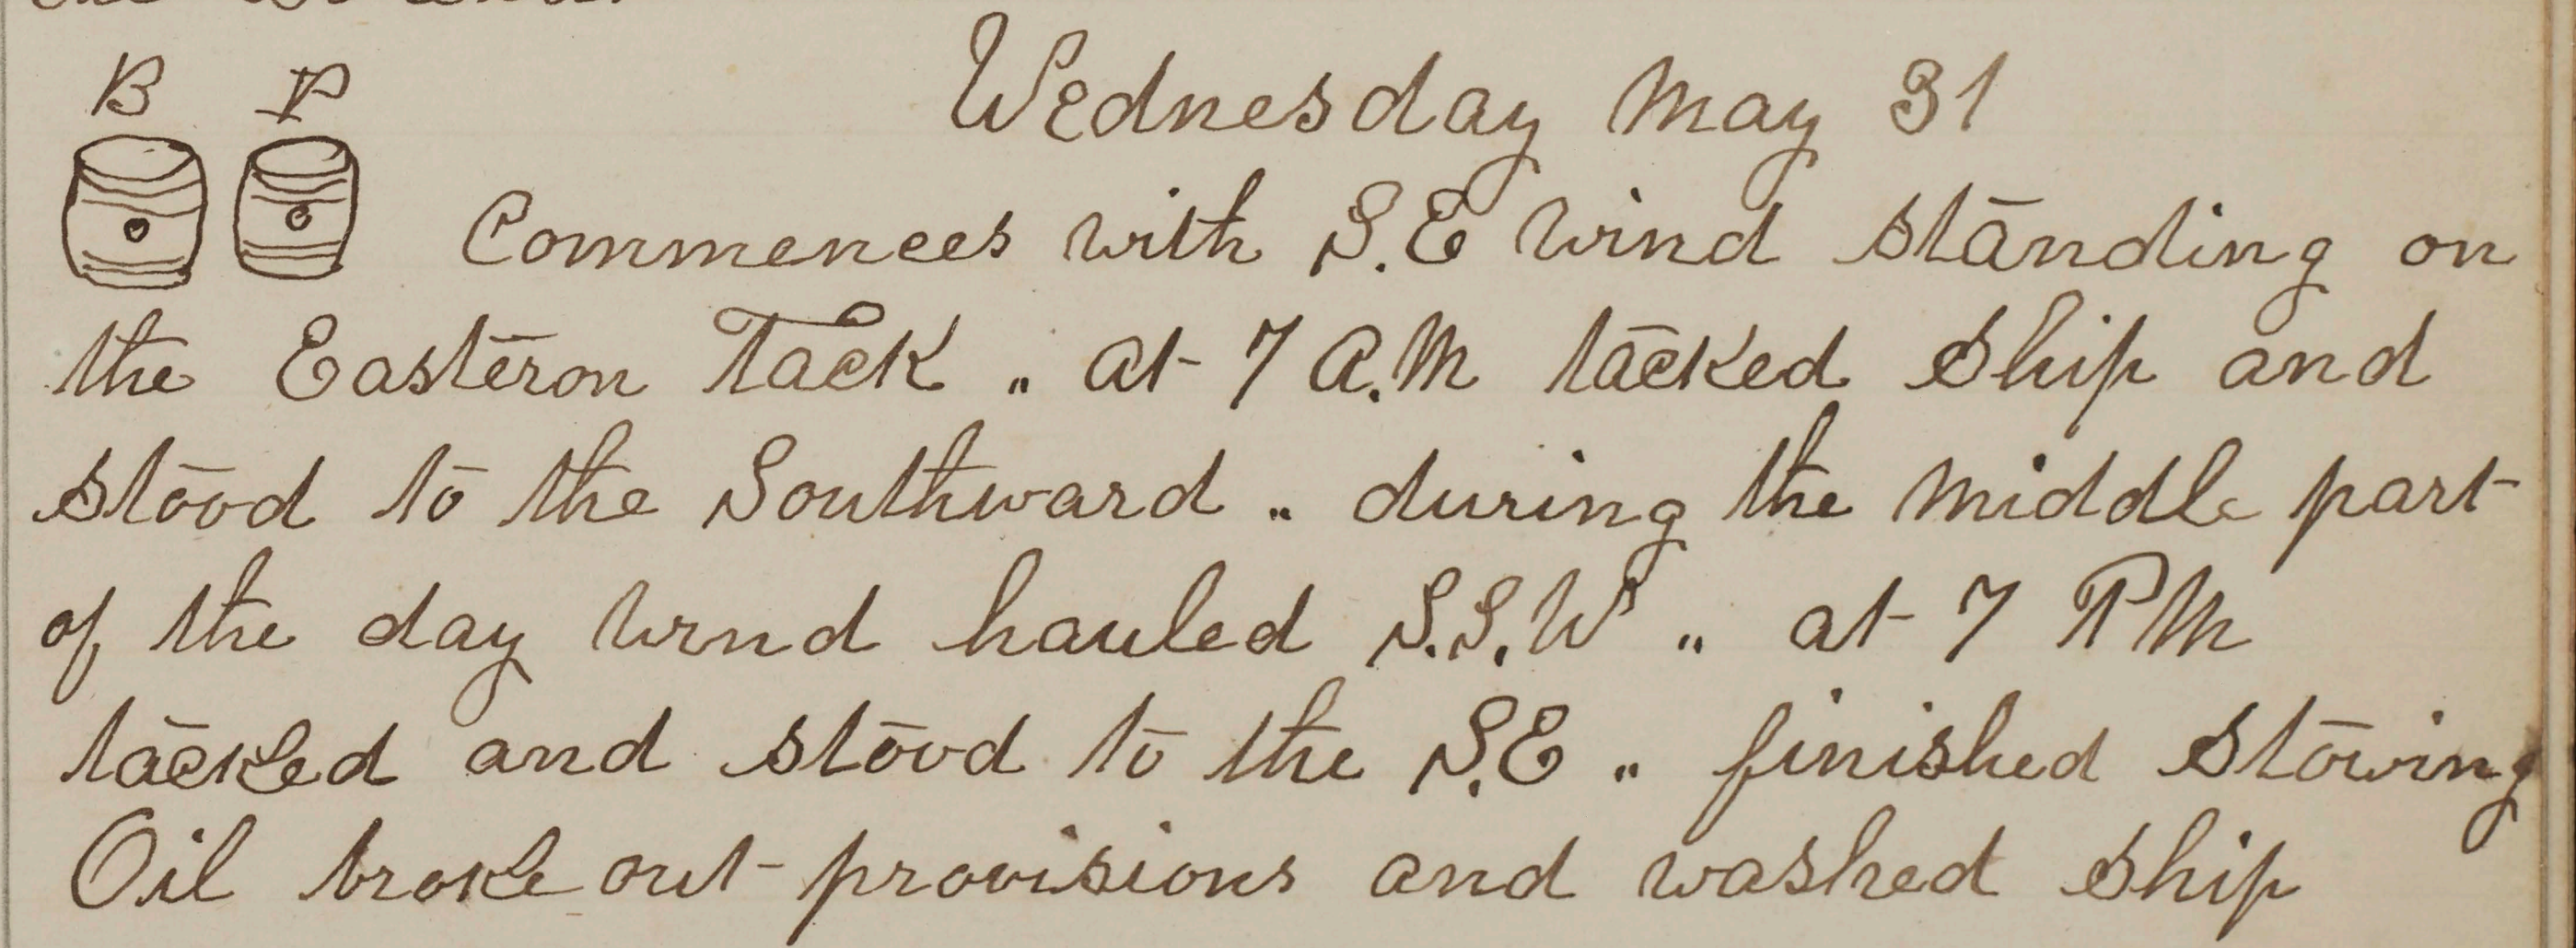 B P
Wednesday May 31
Commences with S.E wind standing on
the Easteron Tack „ at 7 A.M tacked ship and
stood to the Southward „ during the middle part
of the day wind hauled S.S.W „ at 7 PM
tacked and stood to the S.E „ finished stowing
Oil broke out provisions and washed ship